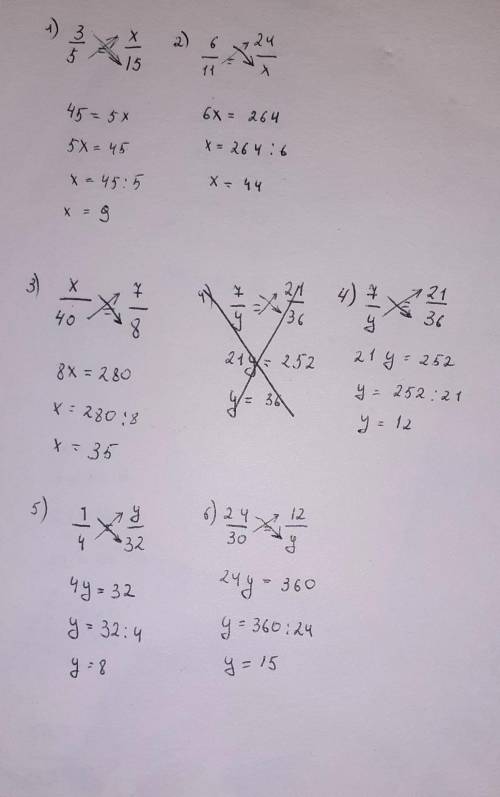 1) 3/5 = x/15
45 = 5x
5x = 45
x = 45:5
x = 9
2) 6/11 = 24/x
6x = 264
x = 264:6
x = 44
3) x/40 = 7/8
8x = 280
x = 280:8
x = 35
4) 7/y = 21/36
21y = 252
y = 36
4) 7/y = 21/36
21y = 252
y = 252:21
y = 12
5) 1/4 = y/32
4y = 32
y = 32:4
y = 8
6) 24/30 = 12/y
24y = 360
y = 360:24
y = 15